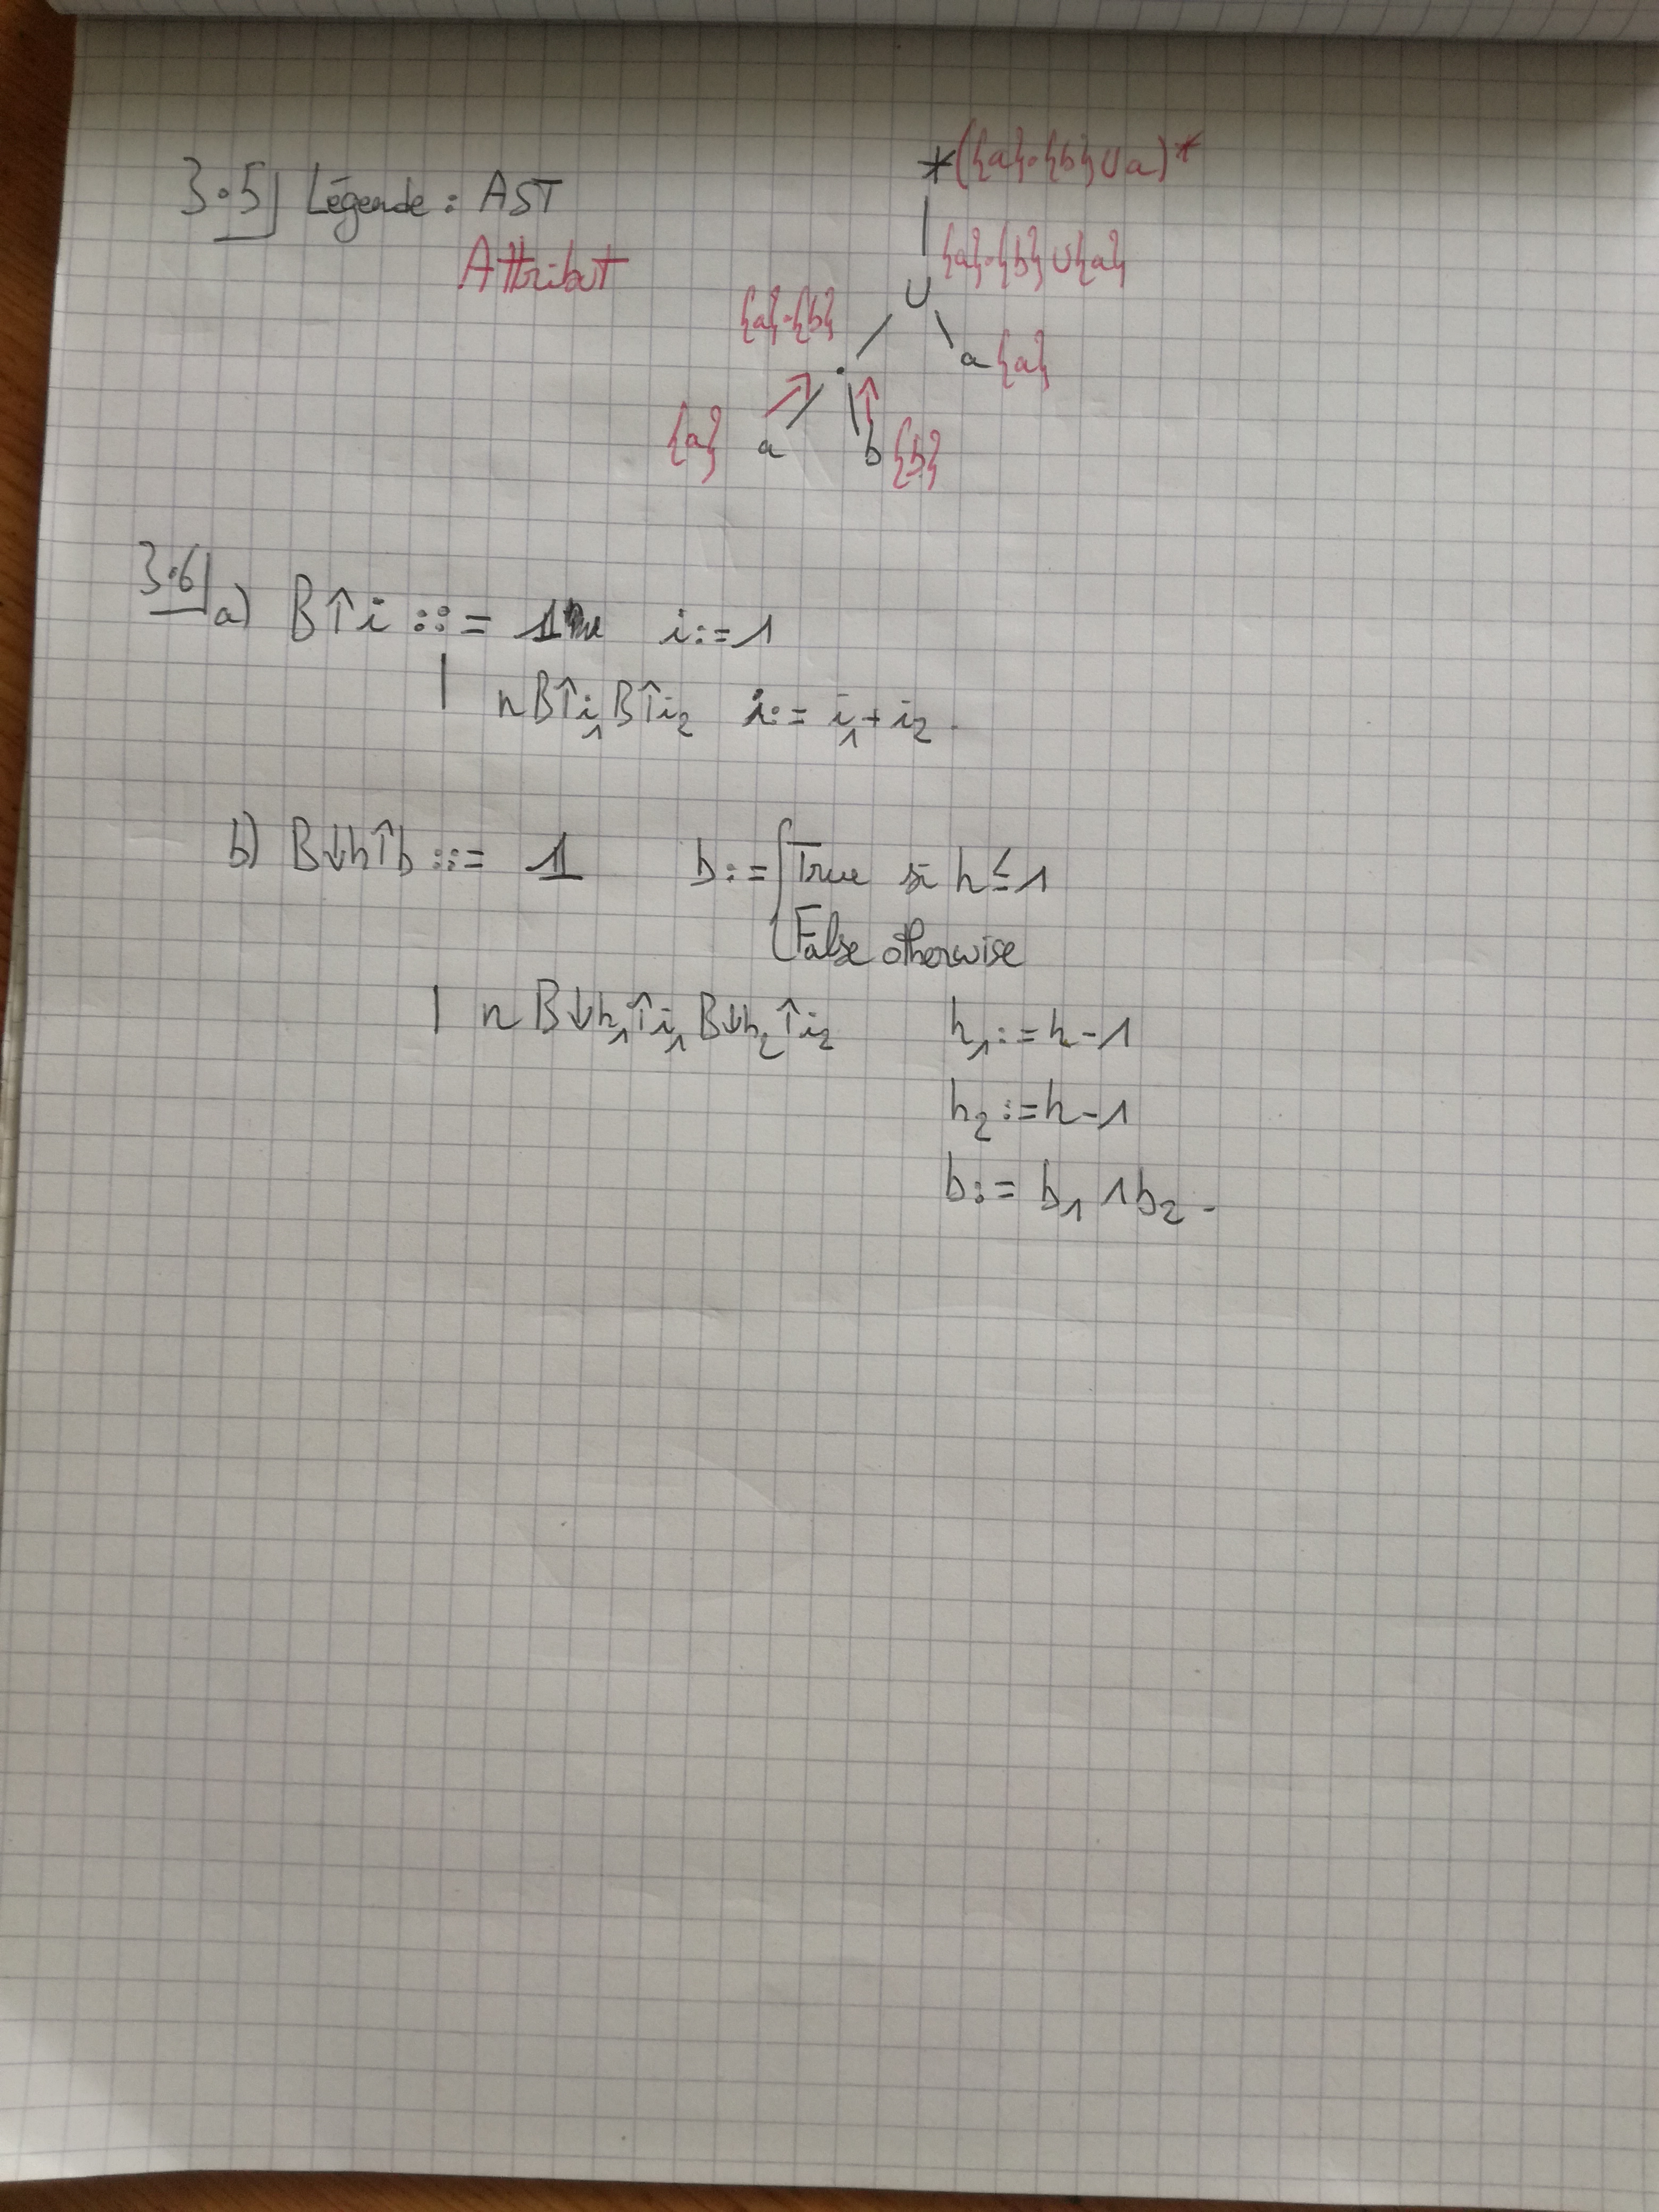 3.5| Légende : AST
Attribut
*({a}.{b}∪a)*
{a}.{b}∪{a}
∪
{a}.{b}
.
a {a}
{a} a
b {b}
3.6|
a) B↑i ::= 1 i:=1
| nB↑i₁B↑i₂ i:= i₁+i₂.
b) B↓h↑b ::= 1 b:={True si h≤1
False otherwise
| n B↓h₁↑i₁B↓h₂↑i₂ h₁:=h-1
h₂:=h-1
b:= b₁∧b₂.